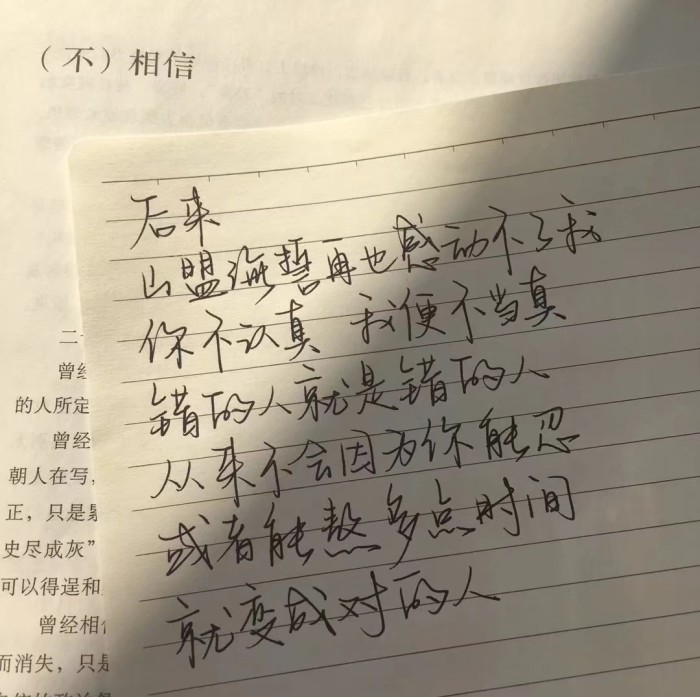 （不）相信
后来
山盟海誓再也感动不了我
你不认真 我便不当真
错的人就是错的人
从来不会因为你能忍
或者能熬多点时间
就变成对的人
二十
曾经
的人所定
曾经
朝人在写，
正，只是
史尽成灰”
可以得逞和
曾经相信
而消失，只是